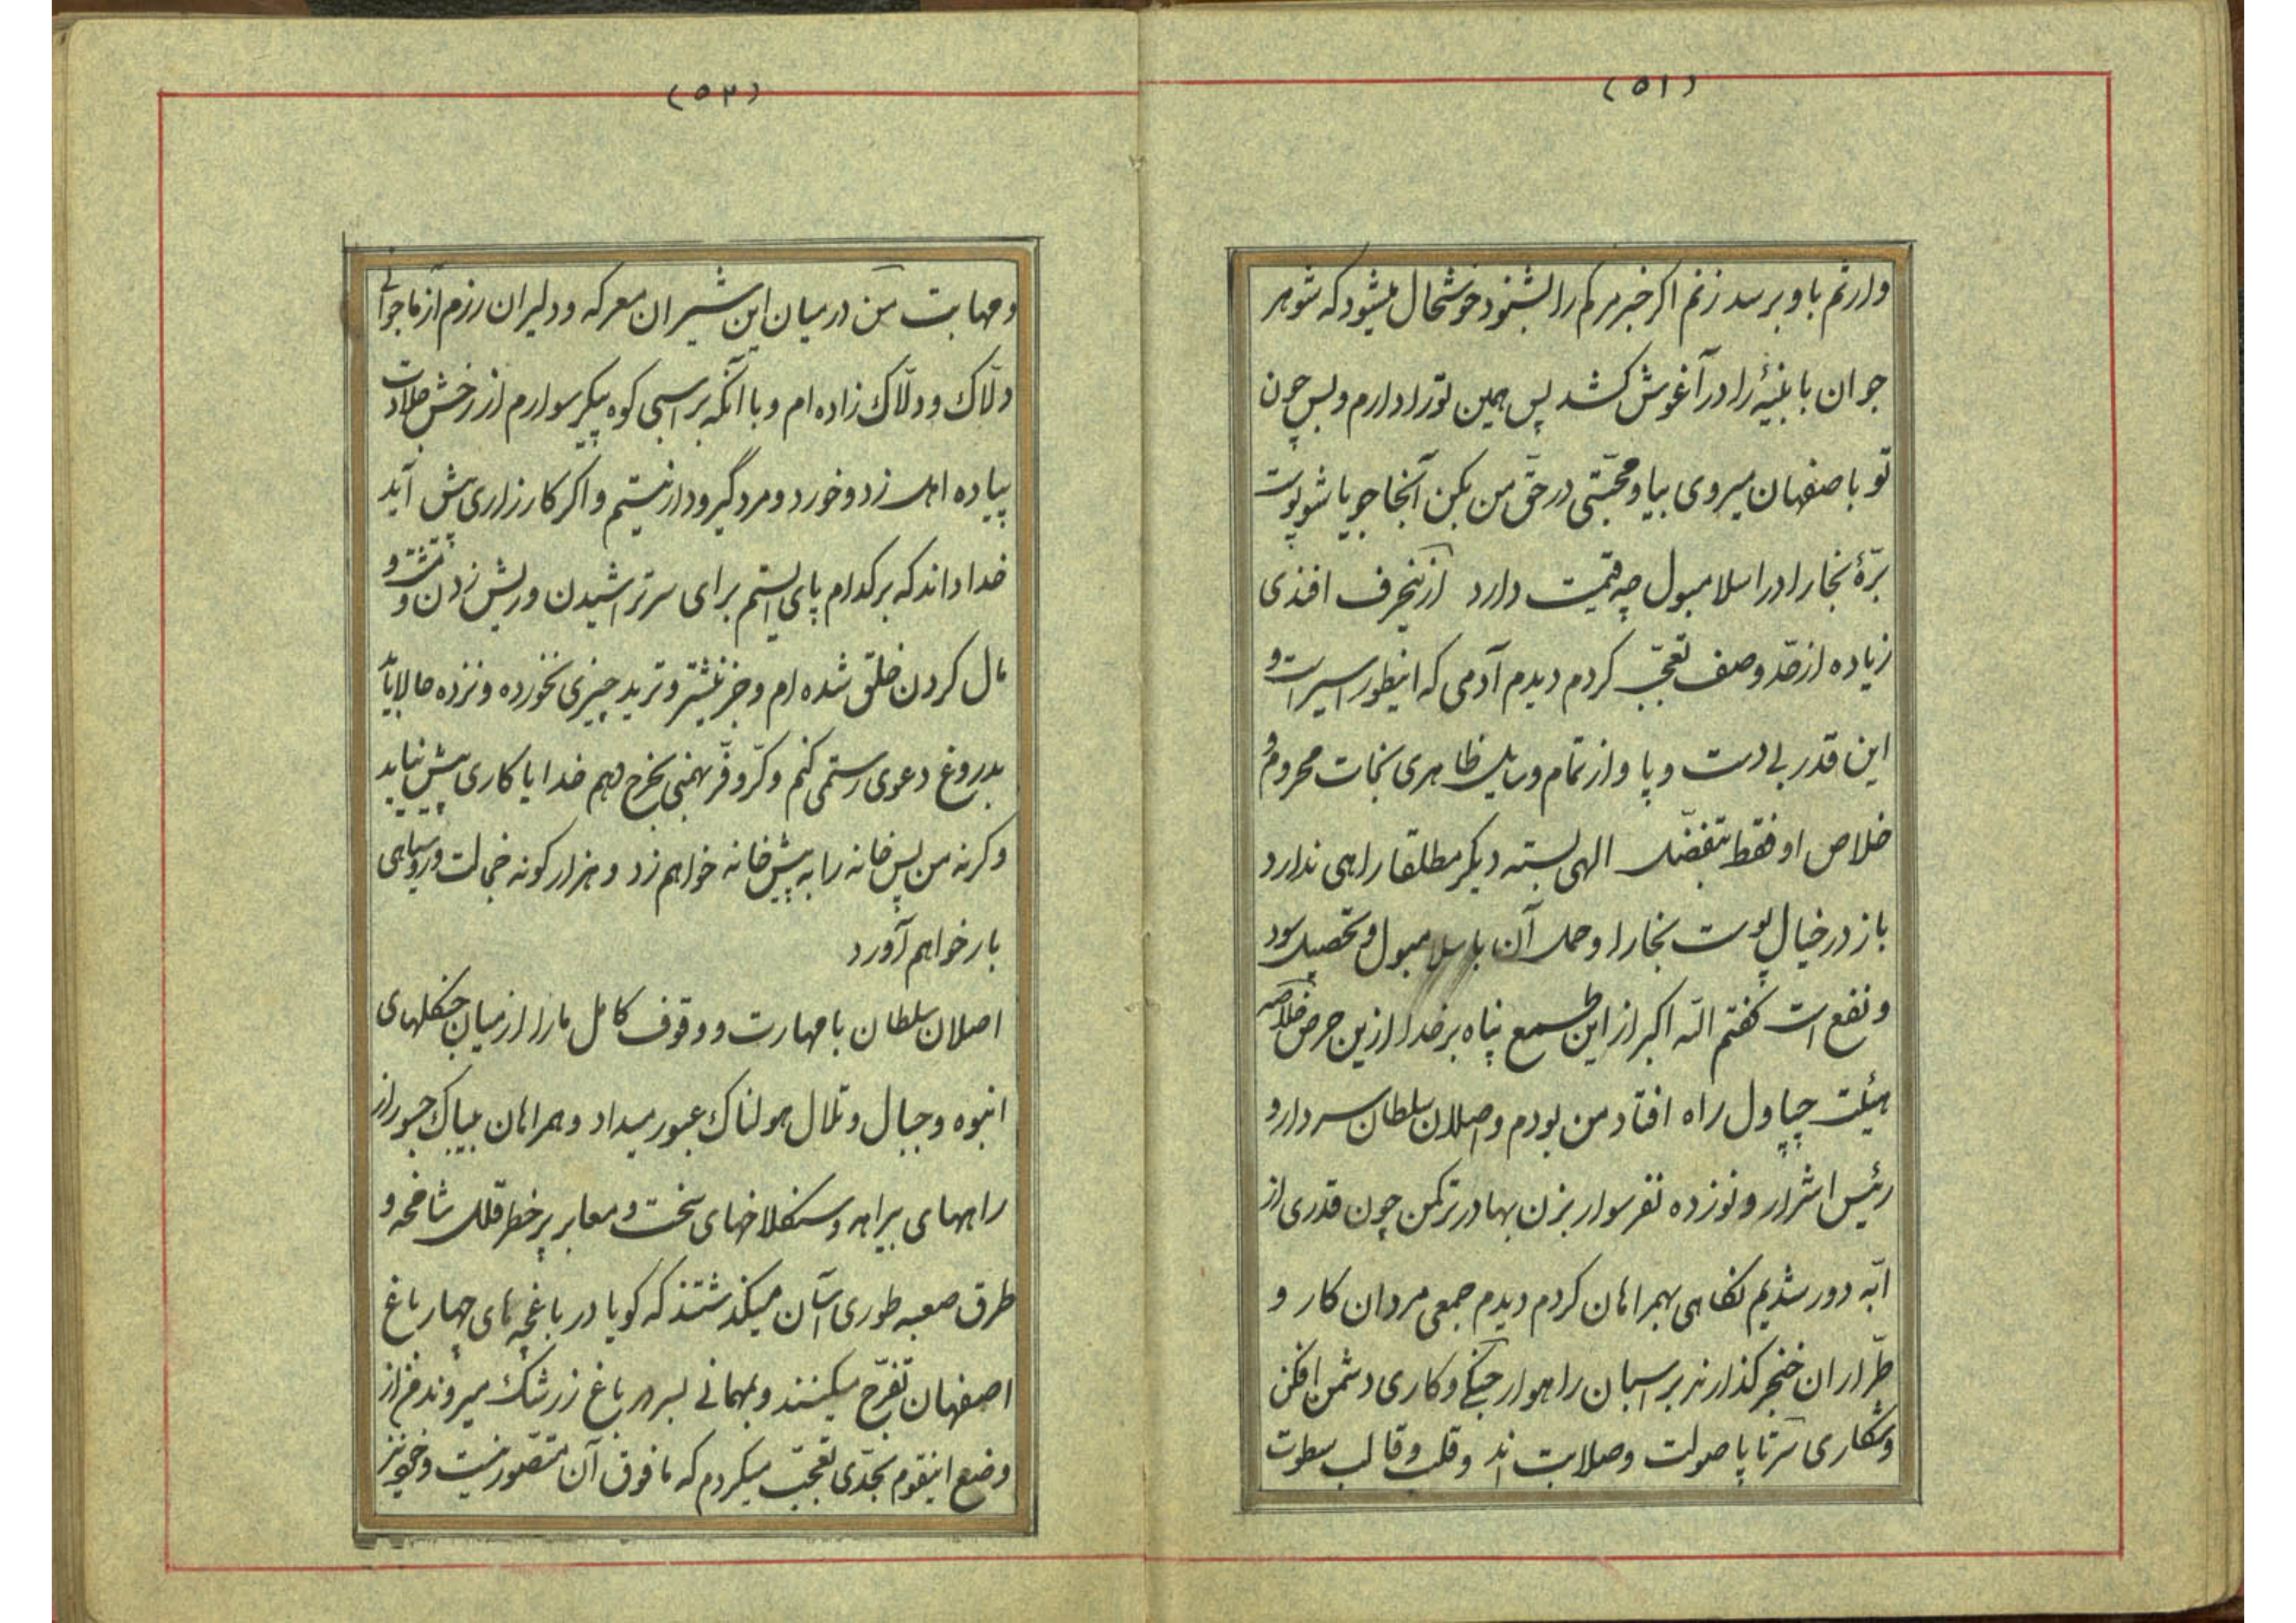 (۵۱)
وارثم باو برسد زنم اکر خبر مرکم را بشنود خوشحال میشود که شوهر
جوان با بنیهٔ را در آغوش کشد پس همین تو را دارم و بس چون
تو باصفهان میروی بیا و محبّتی در حقّ من بکن آنجا جویا شو پوست
برّهٔ بخارا در اسلامبول چه قیمت دارد از اینحرف افندی
زیاده از حدّ وصف تعجّب کردم دیدم آدمی که اینطور اسیر است و
این قدر بی دست و پا و از تمام وسایل ظاهری نجات محروم و
خلاص او فقط بتفضّل الهی بسته دیکر مطلقا راهی ندارد
باز در خیال پوست بخارا و حمل آن باسلامبول و تحصیل سود
و نفع است کفتم اللّه اکبر از این طمع پناه بر خدا ازین حرص خلاصه
هیئت چپاول راه افتاد من بودم و اصلان سلطان سردار و
رئیس اشرار و نوزده نفر سوار بزن بهادر ترکمن چون قدری از
ابّه دور شدیم نکاهی بهمراهان کردم دیدم جمعی مردان کار و
طرّاران خنجر کذارند بر اسبان راهوار جنکی و کاری دشمن افکن
و شکاری سرتا پا صولت و صلابت اند و قلب و قالب سطوت
(۵۲)
و مهابت من در میان این شیران معرکه و دلیران رزم آزما جوانی
دلّاک و دلّاک زاده ام و با آنکه بر اسبی کوه پیکر سوارم از رخش جلادت
پیاده اهل زد و خورد و مرد گیر و دار نیستم و اکر کارزاری پیش آید
خدا داند که بر کدام پای ایستم برای سر تراشیدن و ریش زدن و مشت و
مال کردن خلق شده ام و جز نیشتر و ترید چیزی نخورده و نزده حالا باید
بدروغ دعوی رستمی کنم و کرّ و فرّ بهمنی بخرج دهم خدایا کاری پیش نیاید
وکرنه من پس خانه را به پیش خانه خواهم زد و هزار کونه خجالت و روسیاهی
بار خواهم آورد
اصلان سلطان با مهارت و وقوف کامل مارا از میان جنکلهای
انبوه و جبال و تلال هولناک عبور میداد و همراهان بیباک جسور از
راههای بیراهه و سنکلاخهای سخت و معابر پر خطر قلل شامخه و
طرق صعبه طوری آسان میکذشتند که کویا در باغچه های چهار باغ
اصفهان تفرّج میکنند و بمهمانی بسر در باغ زرشک میروند من از
وضع اینقوم بحدّی تعجّب میکردم که مافوق آن متصّور نیست و خونریز